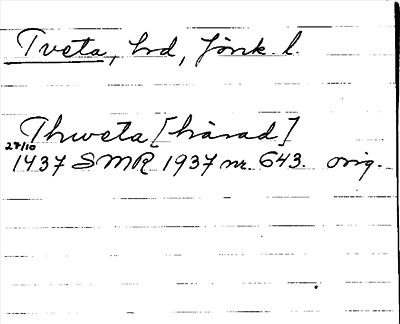 Tveta, hd, Jönk. l.
Thweta [härad]
27/10
1437 SMR 1937 nr. 643. orig.